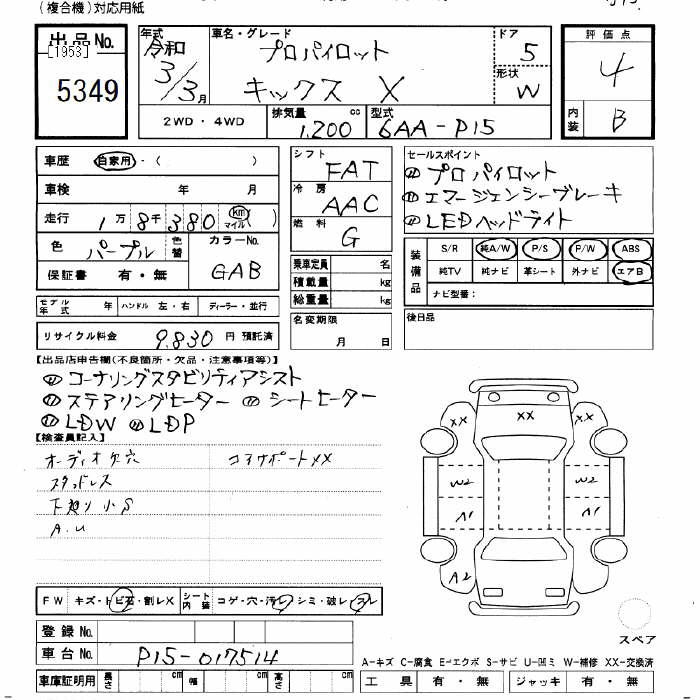 (複合機)対応用紙
出品No.
[1953]
5349
年式 令和 3/3月
車名・グレード プロパイロット
キックス X
ドア 5
形状 W
評価点 4
内装 B
2WD・4WD
排気量 1,200 cc
型式 6AA-P15
車歴 自家用・( )
車検 年 月
走行 1万8千380 km マイル( )
色 パープル 色替
カラーNo. GAB
保証書 有・無
モデル年式 年 ハンドル 左・右 ディーラー・並行
リサイクル料金 9,830円 預託済
シフト FAT
冷房 AAC
燃料 G
乗車定員 名
積載量 kg
総重量 kg
名変期限 月 日
セールスポイント
〃 プロパイロット
〃 エマージェンシーブレーキ
〃 LEDヘッドライト
装備品
S/R 純A/W P/S P/W ABS
純TV 純ナビ 革シート 外ナビ エアB
ナビ型番:
後日品
【出品店申告欄(不良箇所・欠品・注意事項等)】
〃 コーナリングスタビリティアシスト
〃 ステアリングヒーター 〃 シートヒーター
〃 LDW 〃 LDP
【検査員記入】
オーディオ欠穴 コアサポートXX
スタッドレス
下廻り小S
A.U
XX XX XX
W2 W2
A1 A1
A2
スペア
FW キズ・トビ石・割レX シート内装 コゲ・穴・汚レ・シミ・破レ・スレ
登録No.
車台No. P15-017514
車庫証明用 長さ cm 幅 cm 高さ cm
A-キズ C-腐食 E-エクボ S-サビ U-凹ミ W-補修 XX-交換済
工具 有・無 ジャッキ 有・無